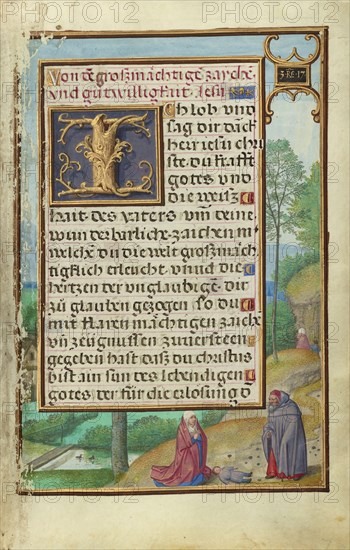 Von de großmächtige zaiche
vnd gutwilligkait Jesu
Ich lob vnd
sag dir danck
herr iesu chri
ste, du krafft
gotes vnd
die weisz
hait des vaters vm deine
wunderbarliche zaichen mi
welche du die welt großmäch
tigklich erleucht vnnd die
hertzen der vnglaubige dir
zu glauben gezogen so du
mit klaren mächtigen zaiche
vn zeugnussen zuuersteen
gegeben hast dasz du christus
bist ain sun des lebendigen
gotes der für die erlösung d
3 R[E] 17